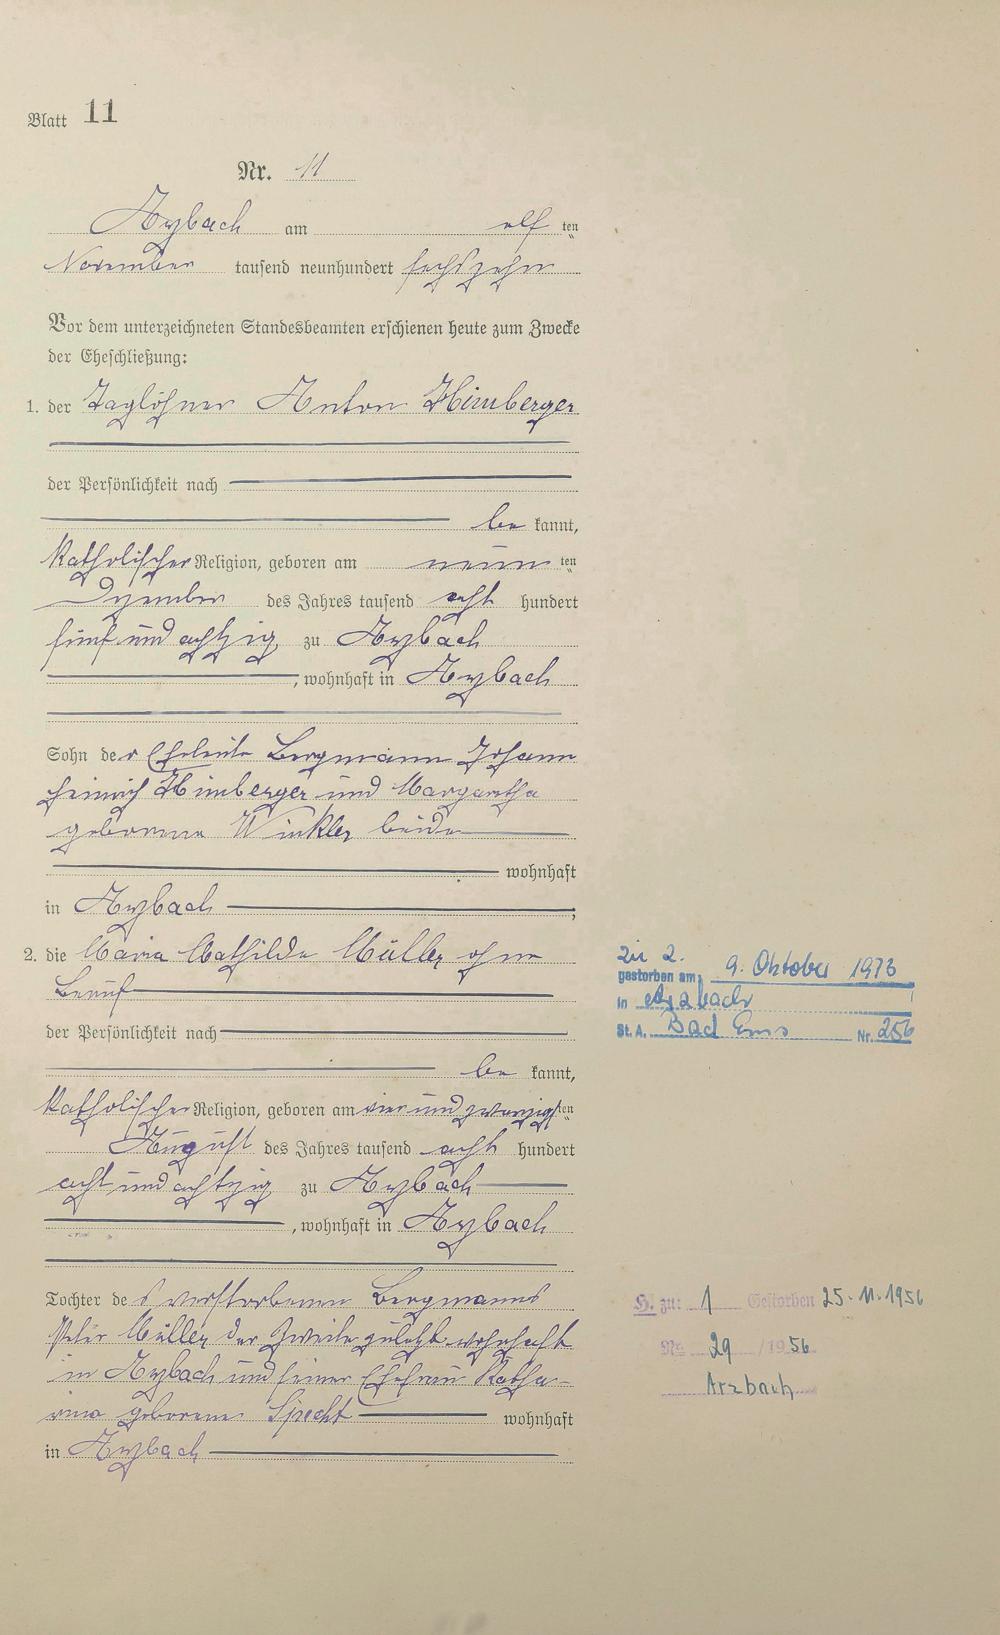 Blatt 11
Nr. 11
Arzbach am elf ten
November tausend neunhundert sechszehn
Vor dem unterzeichneten Standesbeamten erschienen heute zum Zwecke
der Eheschließung:
1. der Taglöhner Anton Himberger
der Persönlichkeit nach
be kannt,
katholischer Religion, geboren am neun ten
Dezember des Jahres tausend acht hundert
fünf und achtzig zu Arzbach
, wohnhaft in Arzbach
Sohn der Eheleute Bergmann Johann
Heinrich Himberger und Margaretha
geborene Winkler beide
wohnhaft
in Arzbach ;
2. die Maria Mathilde Müller ohne
Beruf
der Persönlichkeit nach
be kannt,
katholischer Religion, geboren am vier und zwanzigsten
August des Jahres tausend acht hundert
acht und achtzig zu Arzbach
, wohnhaft in Arzbach
Tochter des verstorbenen Bergmanns
Peter Müller der Zweite zuletzt wohnhaft
in Arzbach und seiner Ehefrau Katha-
rina geborene Specht wohnhaft
in Arzbach
Zu 2.
gestorben am: 9. Oktober 1973
in Arzbach
St. A. Bad Ems Nr. 256
H. zu: 1 Gestorben 25.11.1956
No 29 /1956
Arzbach